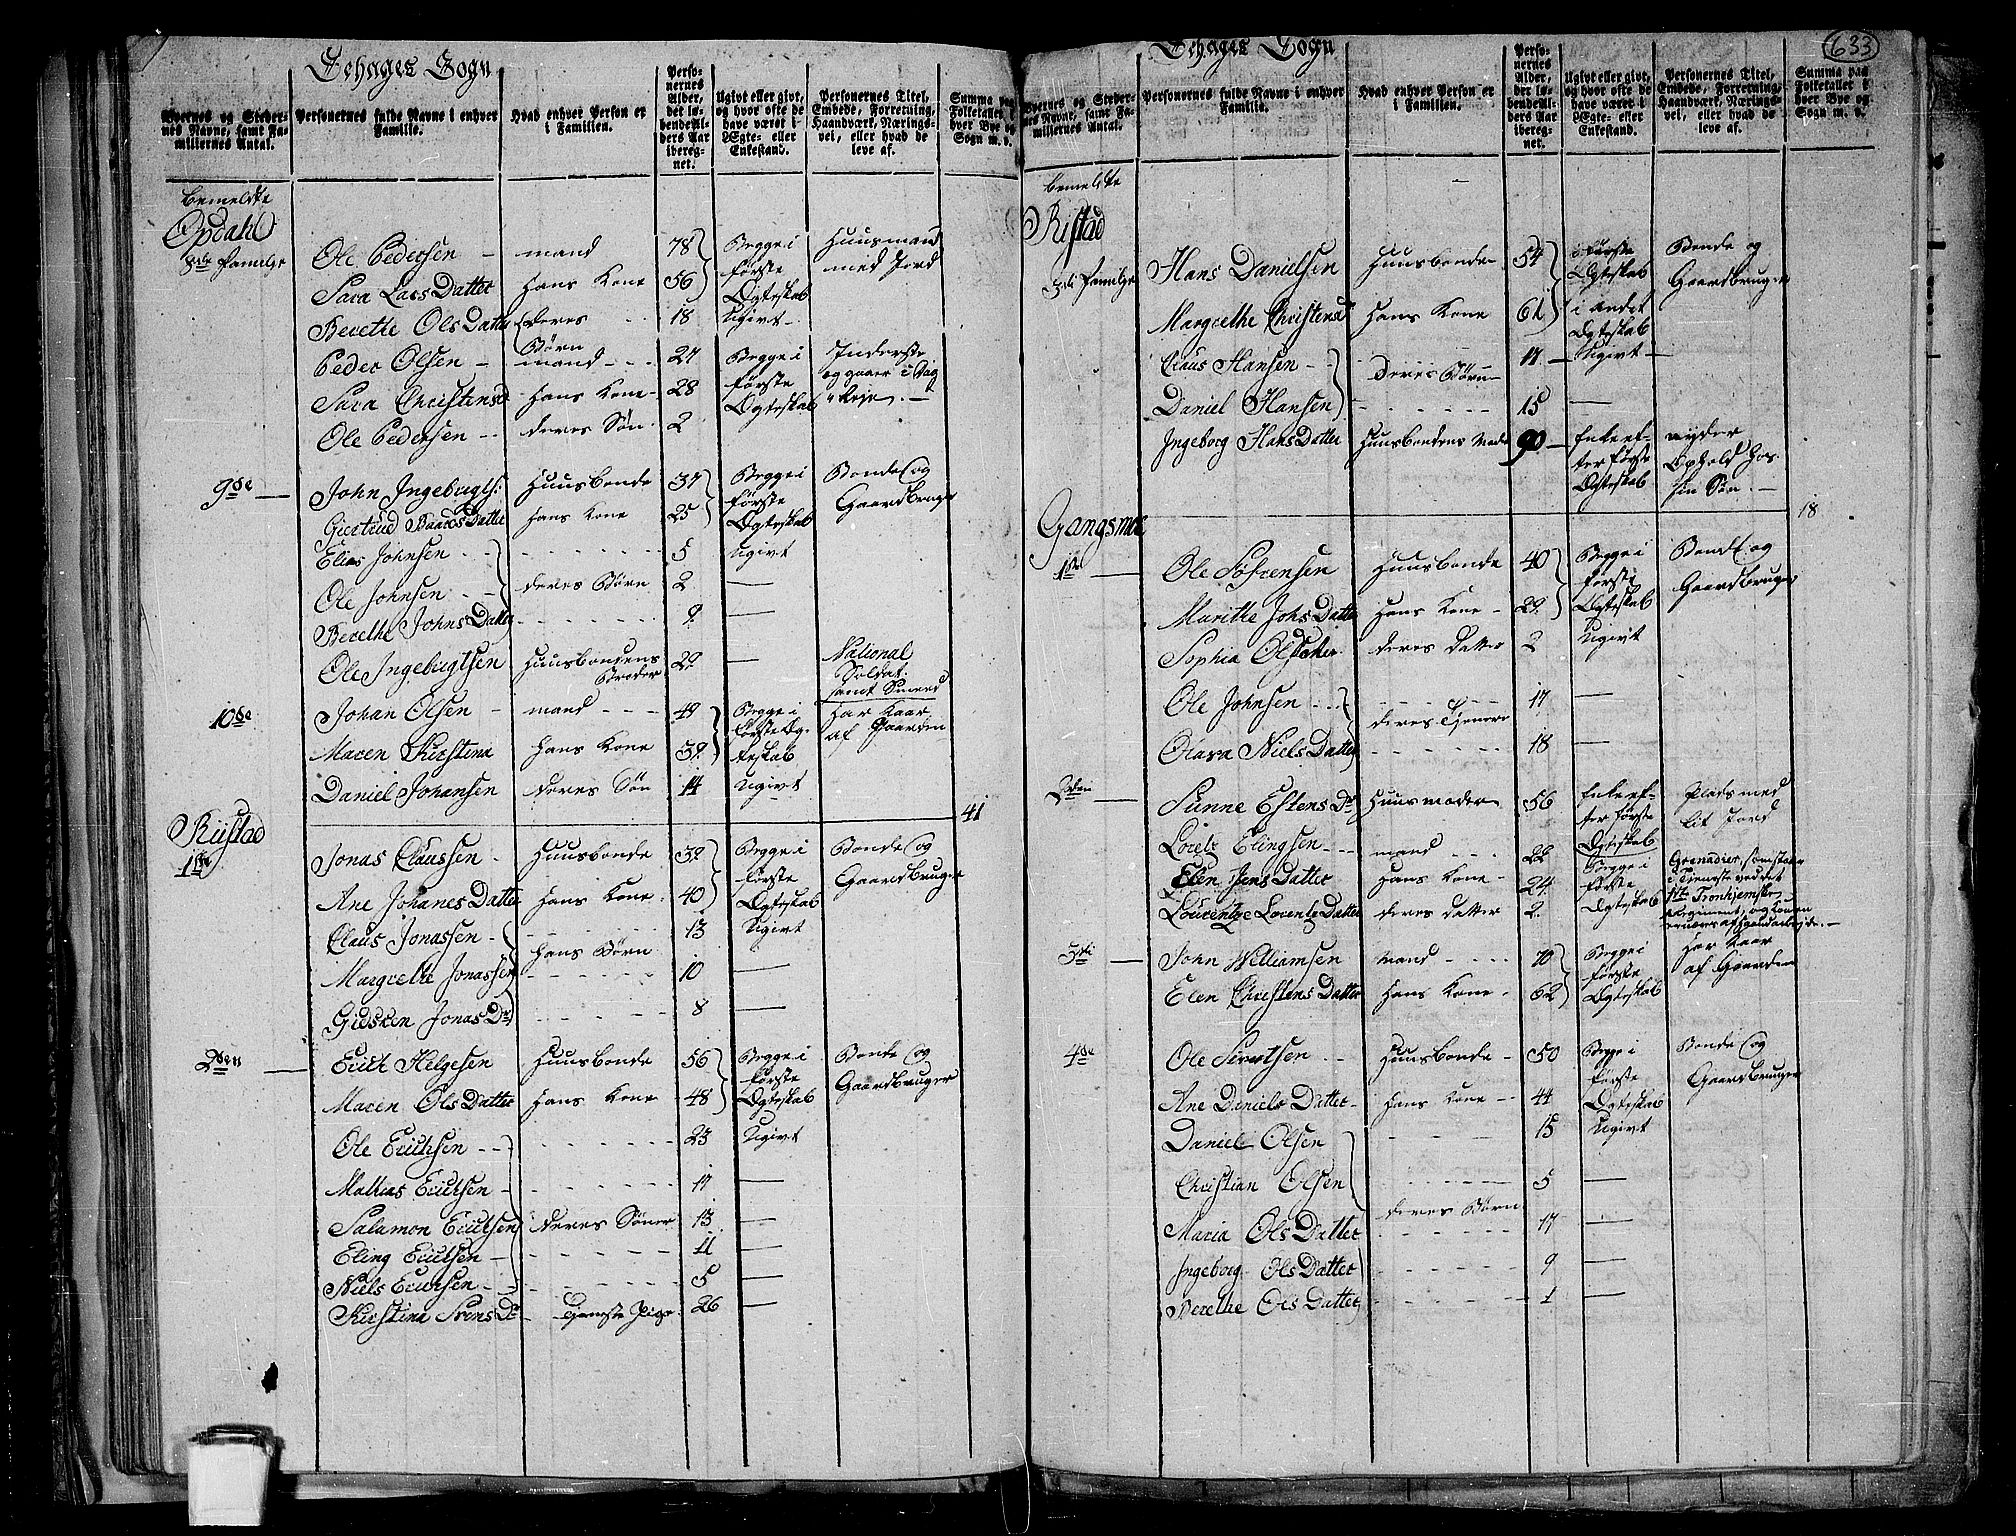 Schages Sogn
Byernes og Stedernes Navne, samt Familiernes Antal.
Personernes fulde Navne i enhver Familie.
Hvad enhver Person er i Familien.
Personernes Alder, det løbende Alders Aar iberegnet.
Ugivt eller givt, og hvor ofte de have været i Ægte- eller Enkestand.
Personernes Titel, Embede, Forretning, Haandværk, Næringsvei, eller hvad de leve af.
Summa paa Folketallet i hver Bye og Sogn m. v.
bemeldte
Opdahl
8de familje
Ole Pedersen - mand 78 Begge i første Ægteskab Huusmand med Jord
Sara LarsDatter hans Kone 56
Berethe OlsDatter deres Børn 18 Ugivt
Peder Olsen - mand - - - 27 Begge i første Ægteskab Inderste og gaaer i Dag Leje
Sara Christensd hans Kone - 28
Ole Pedersen - - deres Søn 2
9de
John Ingebrigts: Huusbonde 37 Begge i første Ægteskab Bonde og Gaardbruger
Giertrud BaardsDatter hans Kone 25
Elias Johnsen - - 5 Ugivt
Ole Johnsen - - deres Børn 2 —
Berethe JohnsDatter 9 —
Ole Ingebrigtsen Huusbondens Broder 29 — National Soldat samt Smeed
10de
Johan Olsen - mand - - - 49 Begge i første Ægteskab har Kaar af Gaarden
Maren Kirstina hans Kone 39
Daniel Johansen deres Søn 14 Ugivt
41
Riistad
1ste
Jonas Claussen - Huusbonde 39 Begge i første Ægteskab Bonde og Gaardbruger
Ane JohanesDatter hans Kone 40
Claus Jonassen - 13 Ugivt
Margrethe Jonassen hans Børn 10 —
Gidsken JonasDr 8 —
2den
Erich Helgesen Huusbonde 56 Begge i første Ægteskab Bonde og Gaardbruger
Maren OlsDatter hans Kone 48
Ole Erichsen - - 23 Ugivt
Mathias Erichsen - 17 —
Salamon Erichsen deres Sønner 13 —
Eling Erichsen - 11 —
Niels Erichsen - - 5 —
Kirstina SvensDr tjeneste Pige 26 —
Schages Sogn
633
Byernes og Stedernes Navne, samt Familiernes Antal.
Personernes fulde Navne i enhver Familie.
Hvad enhver Person er i Familien.
Personernes Alder, det løbende Alders Aar iberegnet.
Ugivt eller givt, og hvor ofte de have været i Ægte- eller Enkestand.
Personernes Titel, Embede, Forretning, Haandværk, Næringsvei, eller hvad de leve af.
Summa paa Folketallet i hver Bye og Sogn m. v.
bemeldte
Ristad
3die familje
Hans Danielsen Huusbonde 54 i første Ægteskab Bonde og Gaardbruger
Margrethe Christensd hans Kone 62 i andet Ægteskab
Claus Hansen - - deres Børn 17 Ugivt
Daniel Hansen 15 —
Ingeborg HansDatter Huusbondens Moder 90 Enke efter første Ægteskab nyder Ophold hos sin Søn
18
Gangsmoe
1ste
Ole Sørensen Huusbonde 40 Begge i første Ægteskab Bonde og Gaardbruger
Marithe JohsDatter hans Kone - 29
Sophia Olsdatter deres datter 2 Ugivt
Ole Johnsen - - - deres tjenere 17 —
Olava NielsDatter 18 —
2den
Sunne EstensDr Huusmoder 56 Enke efter første Ægteskab Plads med lit Jord
Lorelz Elingsen - - - mand 22 Begge i første Ægteskab Grenadier, som staar i Tieneste ved det 1te Tronhjemske Regiment, og Konen ernæres af Haandarbejde. -
Elen JensDatter hans Kone - 24
Lourentze LorentzDatter deres datter 2
3die
John Williamsen mand - - - - 70 Begge i første Ægteskab har Kaar af Gaarden
Elen ChrestensDatter hans Kone - 62
4de
Ole Sivertsen - - Huusbonde - 50 Begge i første Ægteskab Bonde og Gaardbruger
Ane DanielsDatter - hans Kone - - 44
Daniel Olsen 15 Ugivt
Christian Olsen 5 —
Maria OlsDatter deres Børn 17 —
Ingeborg OlsDatter 9 —
Berethe OlsDatter 1 —